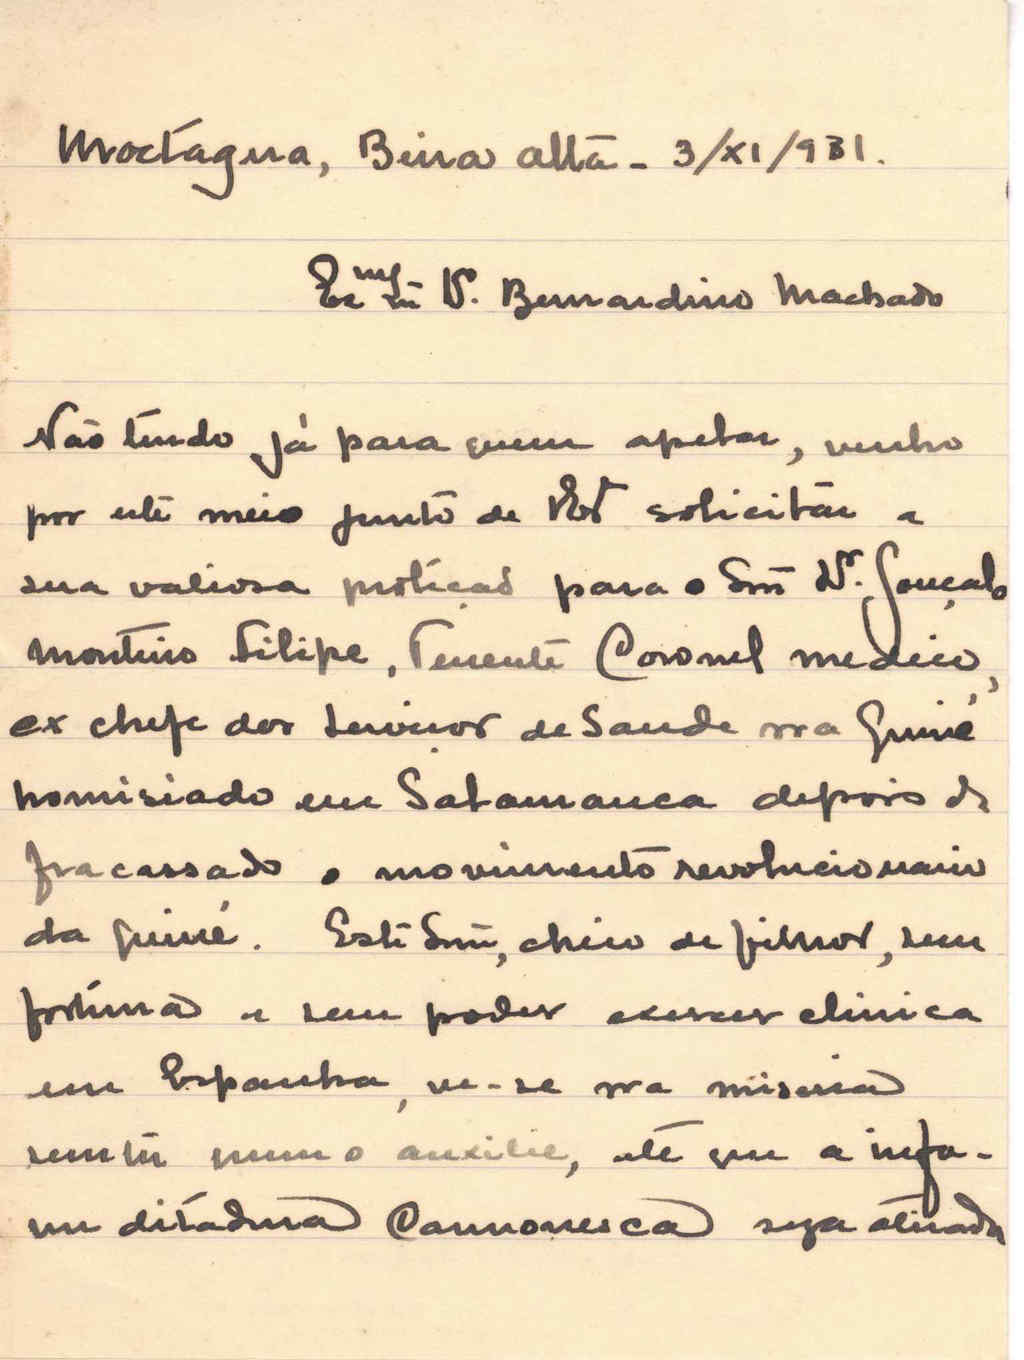 Mortagua, Beira alta - 3/XI/931.
Exmo Sñr Dr. Bernardino Machado
Não tendo já para quem apelar, venho
por este meio junto de V Exª solicitar a
sua valiosa proteção para o Snr Dr. Gonçalo
Monteiro Filipe, Tenente Coronel medico,
ex chefe dos serviços de Saude na Guiné,
homisiado em Salamanca depois de
fracassado o movimento revolucionario
da Guiné. Este Snr, cheio de filhos, sem
fortuna e sem poder exercer clinica
em Espanha, ve-se na miseria
sem ter quem o auxilie, até que a infa-
me ditadura Carmonesca seja atirada